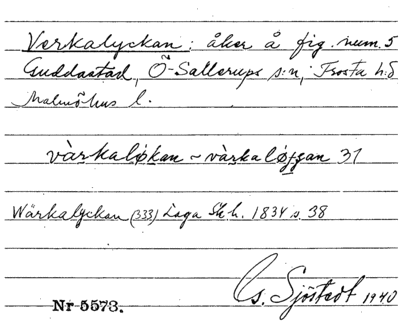 Verkalyckan: åker å fig. num. 5
Guddastad, Ö-Sallerups s:n, Frosta h:d
Malmöhus l.
vàrkaløkan ~ vàrkaløggan 31
Wärkalyckan (333) Laga Sk.h. 1834 s. 38
Nr 5573.
Cs. Sjöstedt 1940